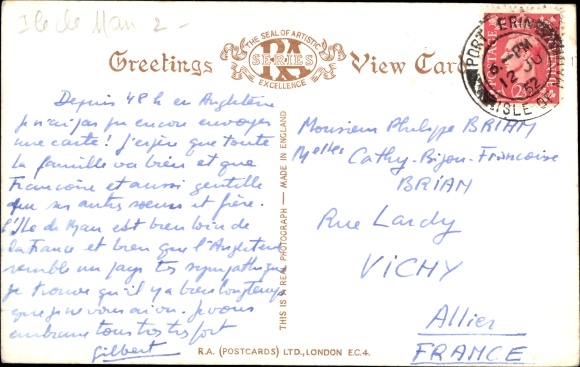 Ile de Man 2 -
THE SEAL OF ARTISTIC
RA
SERIES
EXCELLENCE
Greetings View Card
PORT ERIN
ISLE OF MAN
PM
52
POSTAGE
2½
Depuis 48 h en Angleterre
je n'ai pas pu encore envoyer
une carte! J'espère que toute
la famille va bien et que
Francoise est aussi gentille
que ses autres soeurs et frère.
L'Ile de Man est bien loin de
la France et bien que l'Angleterre
semble un pays très sympathique
je trouve qu'il y a bien longtemps
que je ne vous ai vu. Je vous
embrasse tous très très fort
Gilbert
THIS IS A REAL PHOTOGRAPH — MADE IN ENGLAND
Monsieur Philippe BRIAM
Melles Cathy-Bijou-Francoise
BRIAM
Rue Lardy
VICHY
Allier
FRANCE
R.A. (POSTCARDS) LTD., LONDON E.C.4.